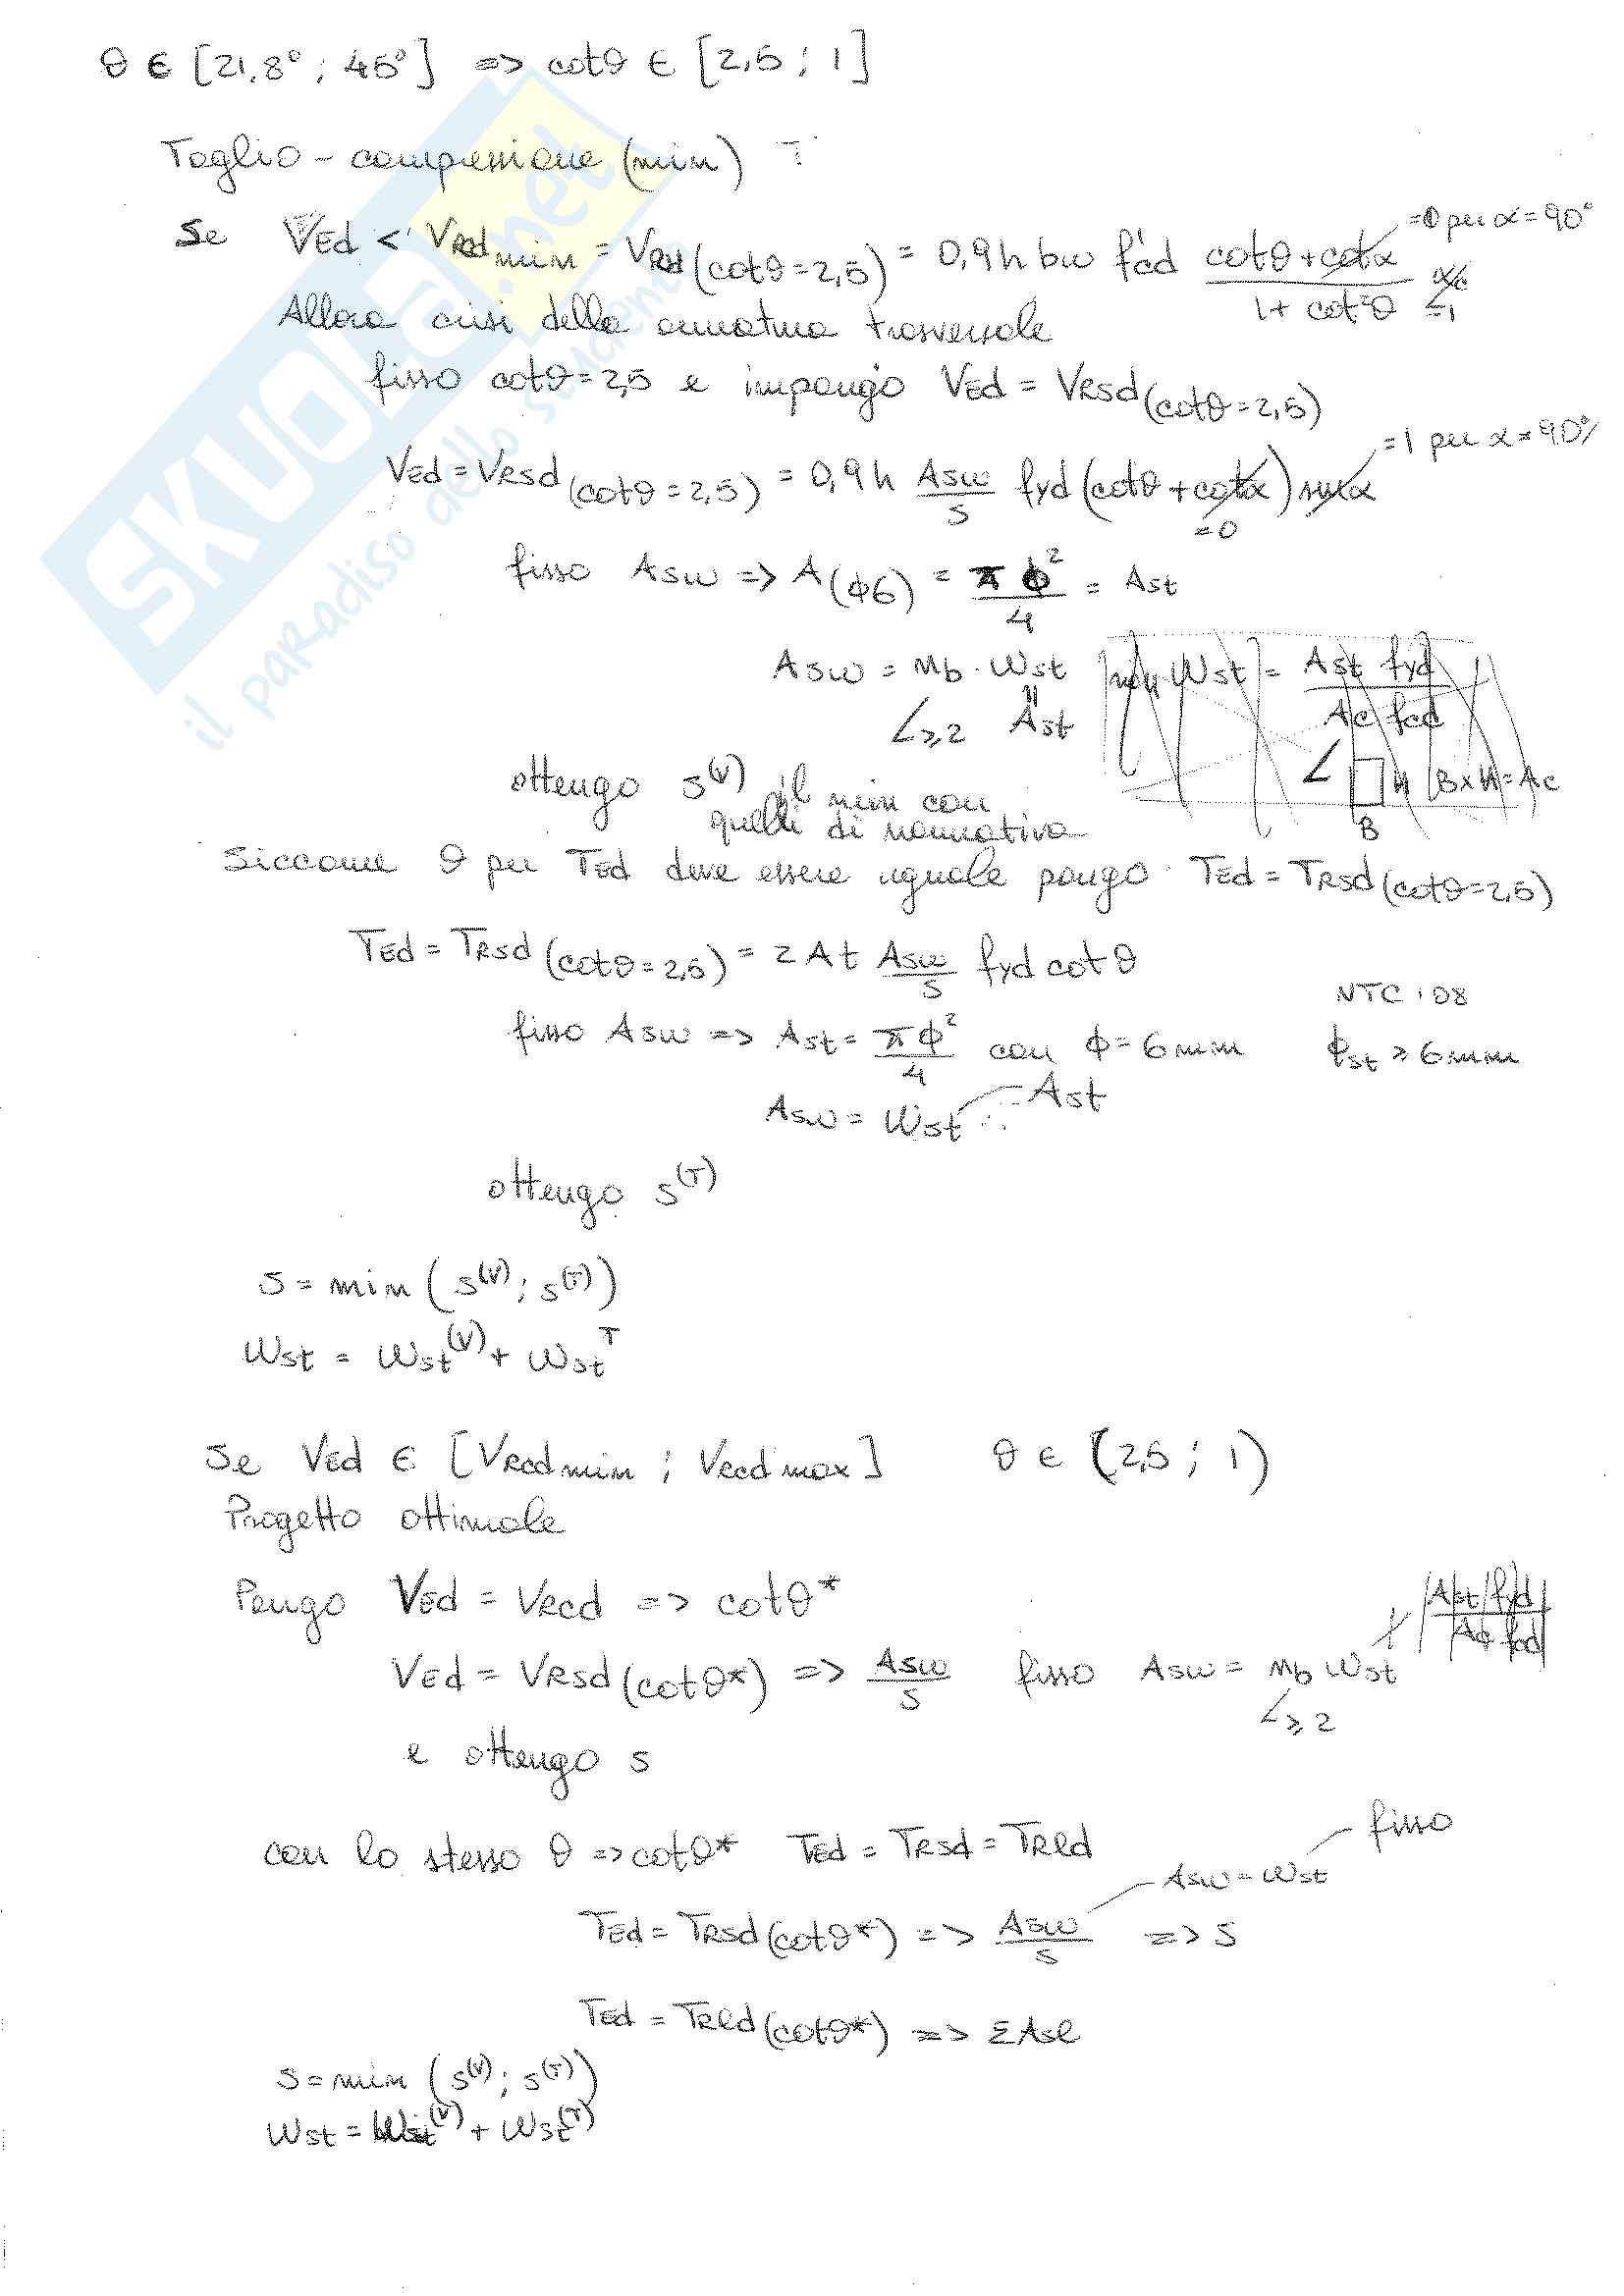 θ ∈ [21,8° ; 45°] => cotθ ∈ [2,5 ; 1]
Taglio - compressione (min)
Se VEd < VRcd min = VRcd (cotθ=2,5) = 0,9 h bw f'cd (cotθ + cotα) / (1 + cot²θ) αc =0 per α=90°
=1
Allora crisi della armatura trasversale
fisso cotθ=2,5 e impongo VEd = VRSd (cotθ=2,5)
VEd = VRSd (cotθ=2,5) = 0,9 h Asw/s fyd (cotθ + cotα) sinα =1 per α=90°
=0
fisso Asw => A(ϕ6) = πϕ²/4 = Ast
Asw = nb · Wst Wst = Ast fyd / Ac fcd
≥2 Ast
H BxH=Ac
B
ottengo s(V) il min con
quelli di normativa
Siccome θ per TEd deve essere uguale pongo TEd = TRSd (cotθ=2,5)
TEd = TRSd (cotθ=2,5) = 2 At Asw/s fyd cotθ
NTC '08
fisso Asw => Ast = πϕ²/4 con ϕ = 6mm ϕst ≥ 6mm
Asw = Wst Ast
ottengo s(T)
s = min (s(V) ; s(T))
Wst = Wst(V) + Wst T
Se VEd ∈ [VRcd min ; VRcd max] θ ∈ (2,5 ; 1)
Progetto ottimale
Pongo VEd = VRcd => cotθ* Ast fyd / Ac fcd
VEd = VRSd (cotθ*) => Asw/s fisso Asw = nb Wst
≥2
e ottengo s
con lo stesso θ => cotθ* TEd = TRSd = TRld fisso
Asw = Wst
TEd = TRSd (cotθ*) => Asw/s => s
TEd = TRld (cotθ*) => ΣAsl
s = min (s(V) ; s(T))
Wst = Wst(V) + Wst(T)
SKUOLA.net
il paradiso dello studente